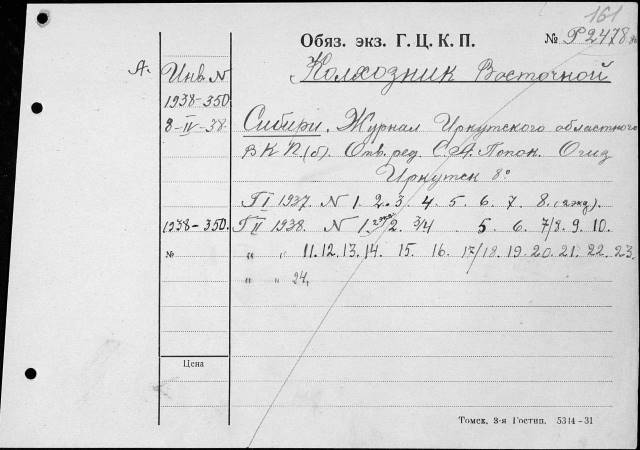 161
Обяз. экз. Г. Ц. К. П. № Р2478
А. Инв. N Колхозник Восточной
1938-350
8-IV-38. Сибири. Журнал Иркутского областного
ВКП(б). Отв. ред. С. А. Попок. Огиз
Иркутск 8°
Г I 1937. N 1. 2. 3. 4. 5. 6. 7. 8. (2 экз).
1938-350. Г II 1938. N 1. 2 экз 2. 3/4 5. 6. 7/8. 9. 10.
№ " " 11. 12. 13. 14. 15. 16. 17/18. 19. 20. 21. 22. 23.
" " 24,
Цена
Томск, 3-я Гостип. 5314-31